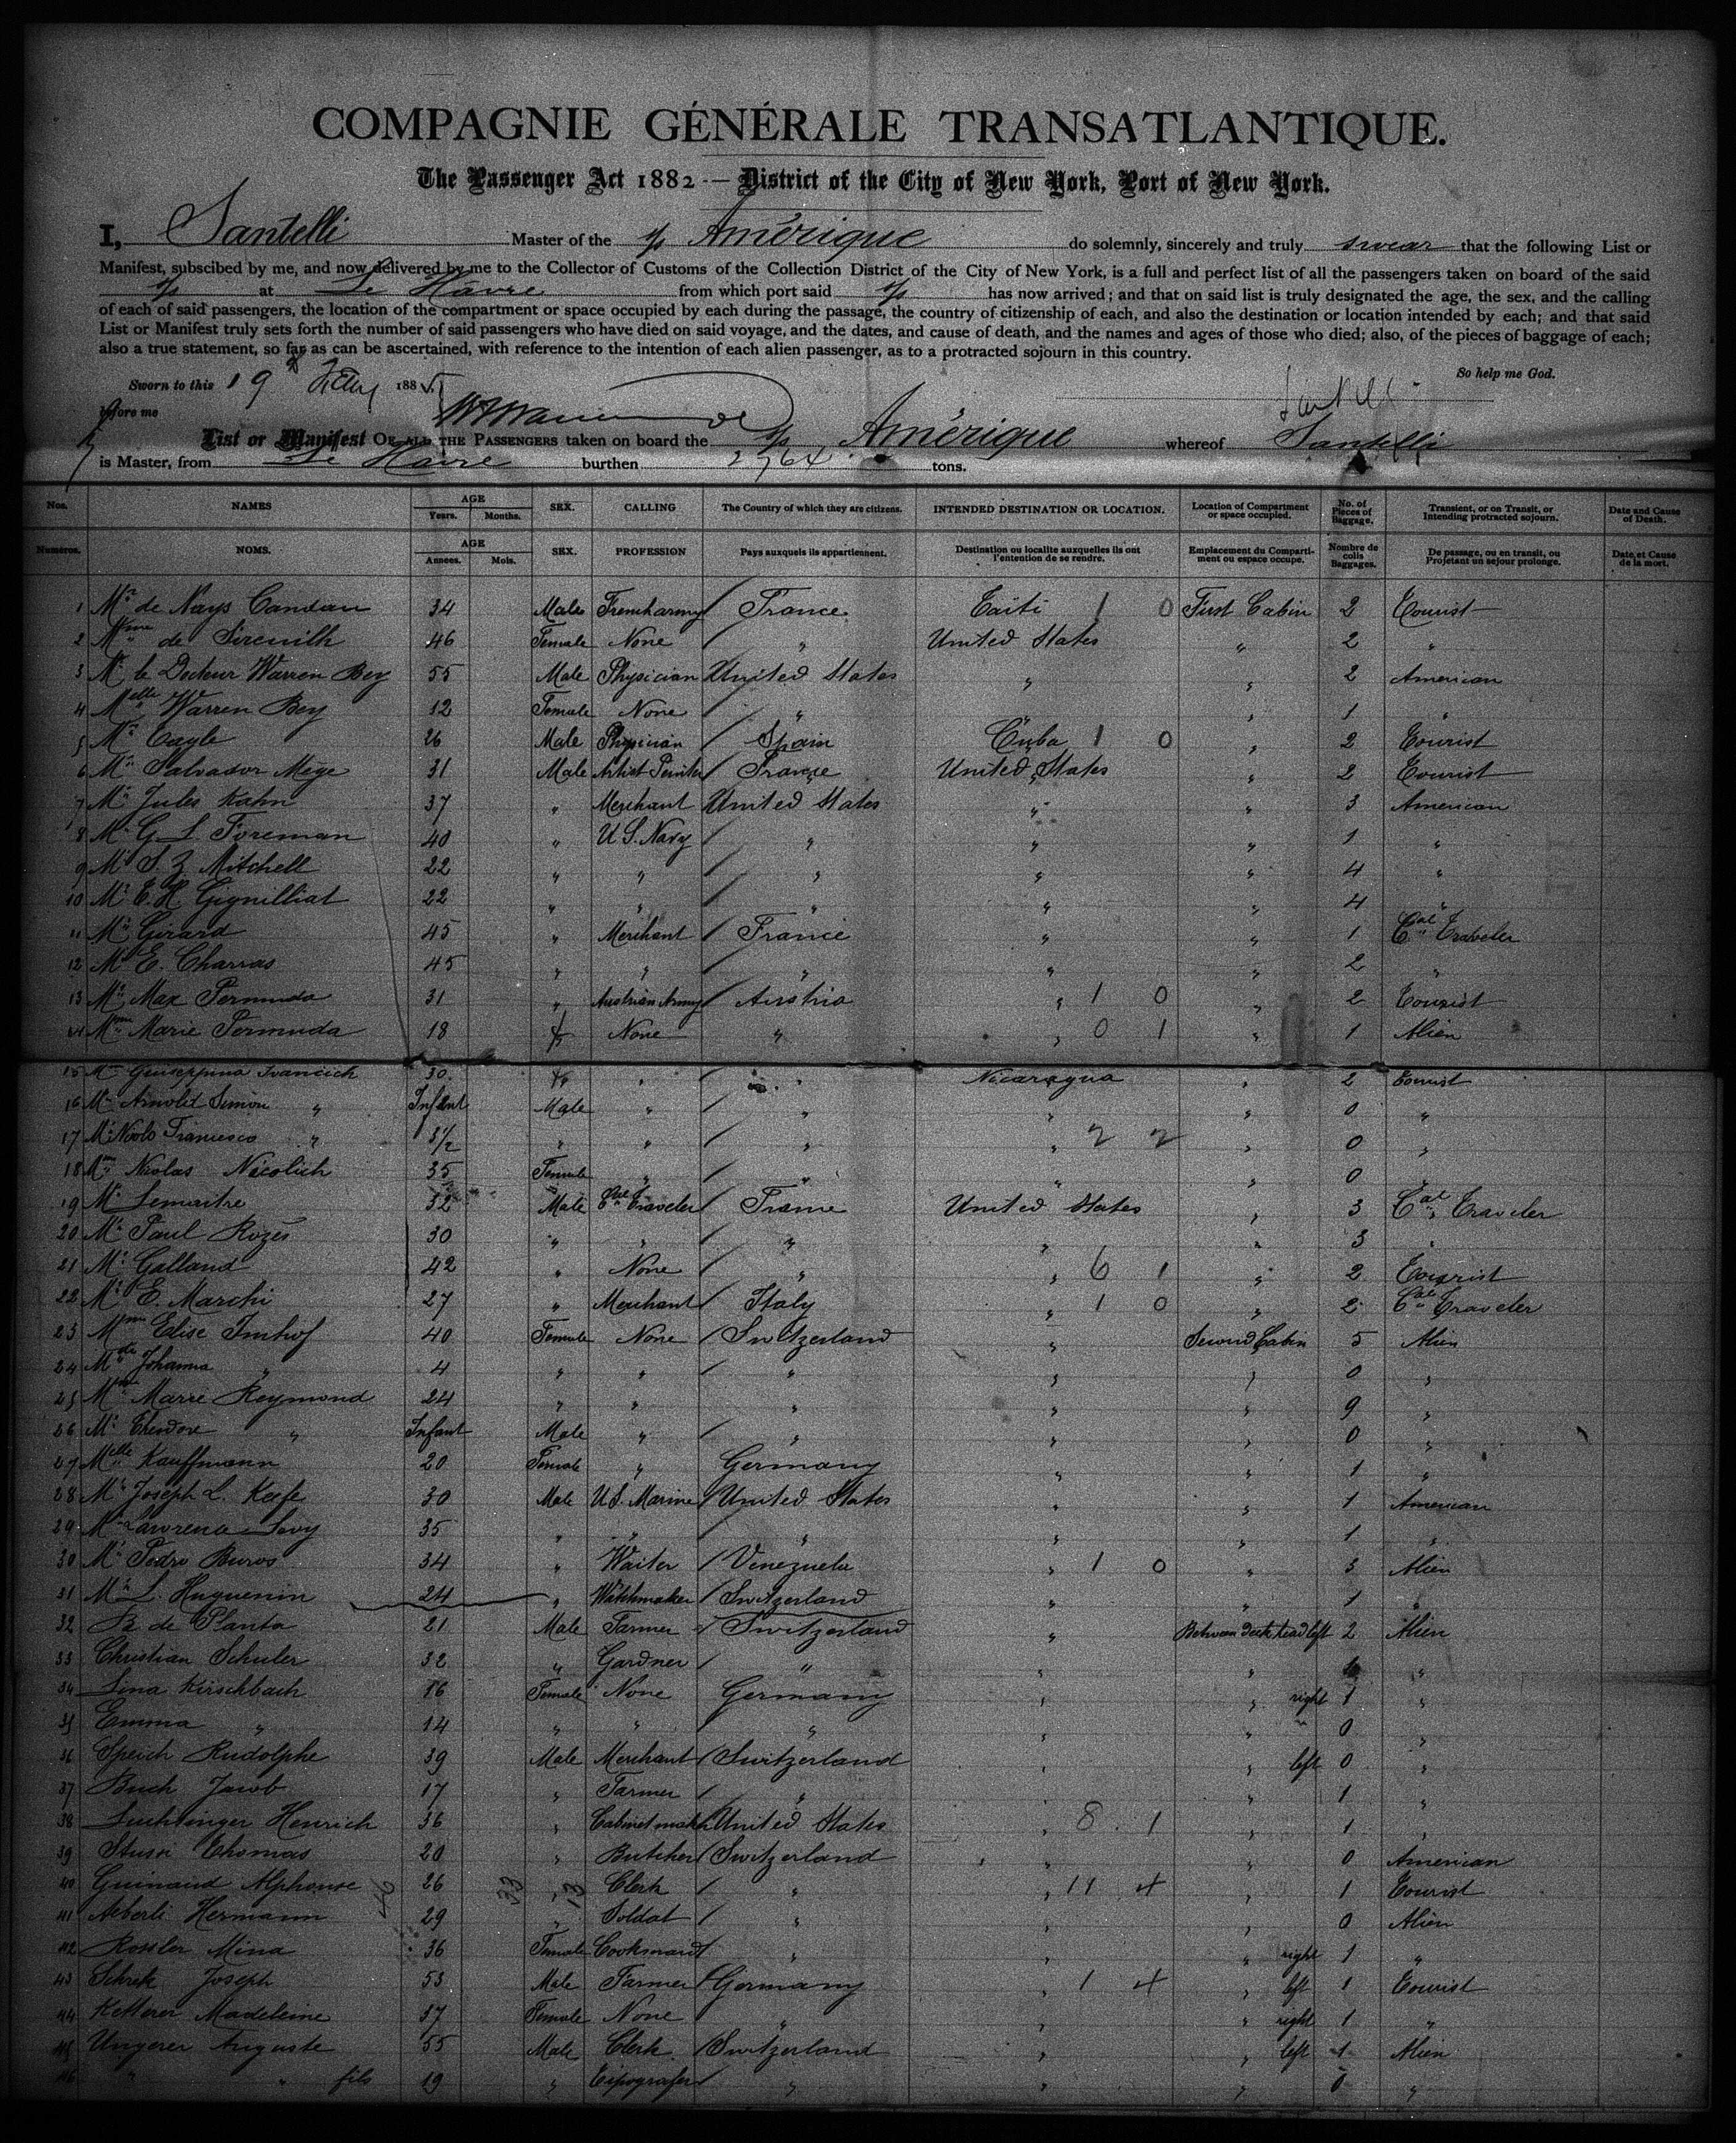 COMPAGNIE GÉNÉRALE TRANSATLANTIQUE.
The Passenger Act 1882 — District of the City of New York, Port of New York.
I, Santelli Master of the s/s Amérique do solemnly, sincerely and truly swear that the following List or
Manifest, subscibed by me, and now delivered by me to the Collector of Customs of the Collection District of the City of New York, is a full and perfect list of all the passengers taken on board of the said
s/s at Le Havre from which port said s/s has now arrived; and that on said list is truly designated the age, the sex, and the calling
of each of said passengers, the location of the compartment or space occupied by each during the passage, the country of citizenship of each, and also the destination or location intended by each; and that said
List or Manifest truly sets forth the number of said passengers who have died on said voyage, and the dates, and cause of death, and the names and ages of those who died; also, of the pieces of baggage of each;
also a true statement, so far as can be ascertained, with reference to the intention of each alien passenger, as to a protracted sojourn in this country.
So help me God.
Sworn to this 19 1885
before me
List or Manifest OF ALL THE PASSENGERS taken on board the s/s Amérique whereof Santelli
is Master, from Le Havre burthen 2764 tons.
Nos. NAMES AGE Years. Months. SEX. CALLING The Country of which they are citizens. INTENDED DESTINATION OR LOCATION. Location of Compartment or space occupied. No. of Pieces of Baggage. Transient, or on Transit, or Intending protracted sojourn. Date and Cause of Death.
Numéros. NOMS. AGE Années. Mois. SEX. PROFESSION Pays auxquels ils appartiennent. Destination ou localite auxquelles ils ont l'entention de se rendre. Emplacement du Compartiment ou espace occupe. Nombre de colis Baggages. De passage, ou en transit, ou Projetant un sejour prolonge. Date et Cause de la mort.
1 Mr de Nays Candau 34 Male French army / France Taïti 1 0 First Cabin 2 Tourist
2 Mme de Sirenilh 46 Female None / " United States " 2 "
3 Mr le Docteur Warren Bey 55 Male Physician United States " " 2 American
4 Melle Warren Bey 12 Female None / " " " 1 "
5 Mr Cayle 26 Male Physician / Spain Cuba 1 0 " 2 Tourist
6 Mr Salvador Mege 31 Male Artist Peinter / France United States " 2 Tourist
7 Mr Jules Kahn 37 " Merchant United States " " 3 American
8 Mr G L Foreman 40 " U S. Navy / " " " 1 "
9 Mr S. Z. Mitchell 22 " " / " " " 4 "
10 Mr E. H. Gignilliat 22 " " / " " " 4 "
11 Mr Girard 45 " Merchant / France " " 1 Cal Traveler
12 Mr E. Charras 45 " " / " " " 2 "
13 Mr Max Permuda 31 " Austrian Army / Austria " 1 0 " 2 Tourist
14 Mme Marie Permuda 18 f None / " " 0 1 " 1 Alien
15 Mme Guiseppina Ivancich 30 f " / " Nicaragua " 2 Tourist
16 Mr Arnold Simon " Infant Male " / " " " 0 "
17 Mr Francesco " 3 1/2 " " / " " 2 2 " 0 "
18 Mme Nicolas Nicolich 35 Female " / " " " 0 "
19 Mr Lemaitre 32 Male Cal Traveler / France United States " 3 Cal Traveler
20 Mr Paul Rozès 30 " " / " " " 3 "
21 Mr Galland 42 " None / " " 6 1 " 2 Tourist
22 Mr E. Marchi 27 " Merchant / Italy " 1 0 " 2 Cal Traveler
23 Mme Elise Imhof 40 Female None / Switzerland " Second Cabin 5 Alien
24 Mde Johanna " 4 " " / " " " 0 "
25 Mme Marie Reymond 24 " " " " " 9 "
26 Mr Theodore " Infant Male " / " " " 0 "
27 Melle Kauffmann 20 Female " Germany " " 1 "
28 Mr Joseph L. Keefe 30 Male U.S. Marine / United States " " 1 American
29 Mr Lawrence Levy 35 " " / " " " 1 "
30 Mr Pedro Buros 34 " Waiter / Venezuela " 1 0 " 3 Alien
31 Mr L. Huguenin 24 " Watchmaker / Switzerland " " 1 "
32 B. de Planta 21 Male Farmer / Switzerland " Between deck head left 2 Alien
33 Christian Schuler 32 " Gardner / " " " "
34 Lina Kirschbach 16 Female None Germany " " right 1 "
35 Emma " 14 " " " " " " 0 "
36 Speich Rudolphe 39 Male Merchant / Switzerland " left 0 "
37 Buch Jacob 17 " Farmer / " " " 1 "
38 Luchsinger Henrich 36 " Cabinet maker United States " 8 1 " 1 "
39 Thomas 20 " Butcher / Switzerland " " 0 American
40 Guinand Alphonse 26 " Clerk / " " 11 4 " 1 Tourist
41 Aeberli Hermann 29 " Soldat / " " " 0 Alien
42 Rossler Mina 36 Female Cooksmaid / " " " right 1 "
43 Schrek Joseph 53 Male Farmer / Germany " 1 4 " left 1 Tourist
44 Ketterer Madeleine 37 Female None " " " right 1 "
45 Ungerer Auguste 55 Male Clerk / Switzerland " " left 1 Alien
46 " " fils 19 " Tipografer / " " " 0 "